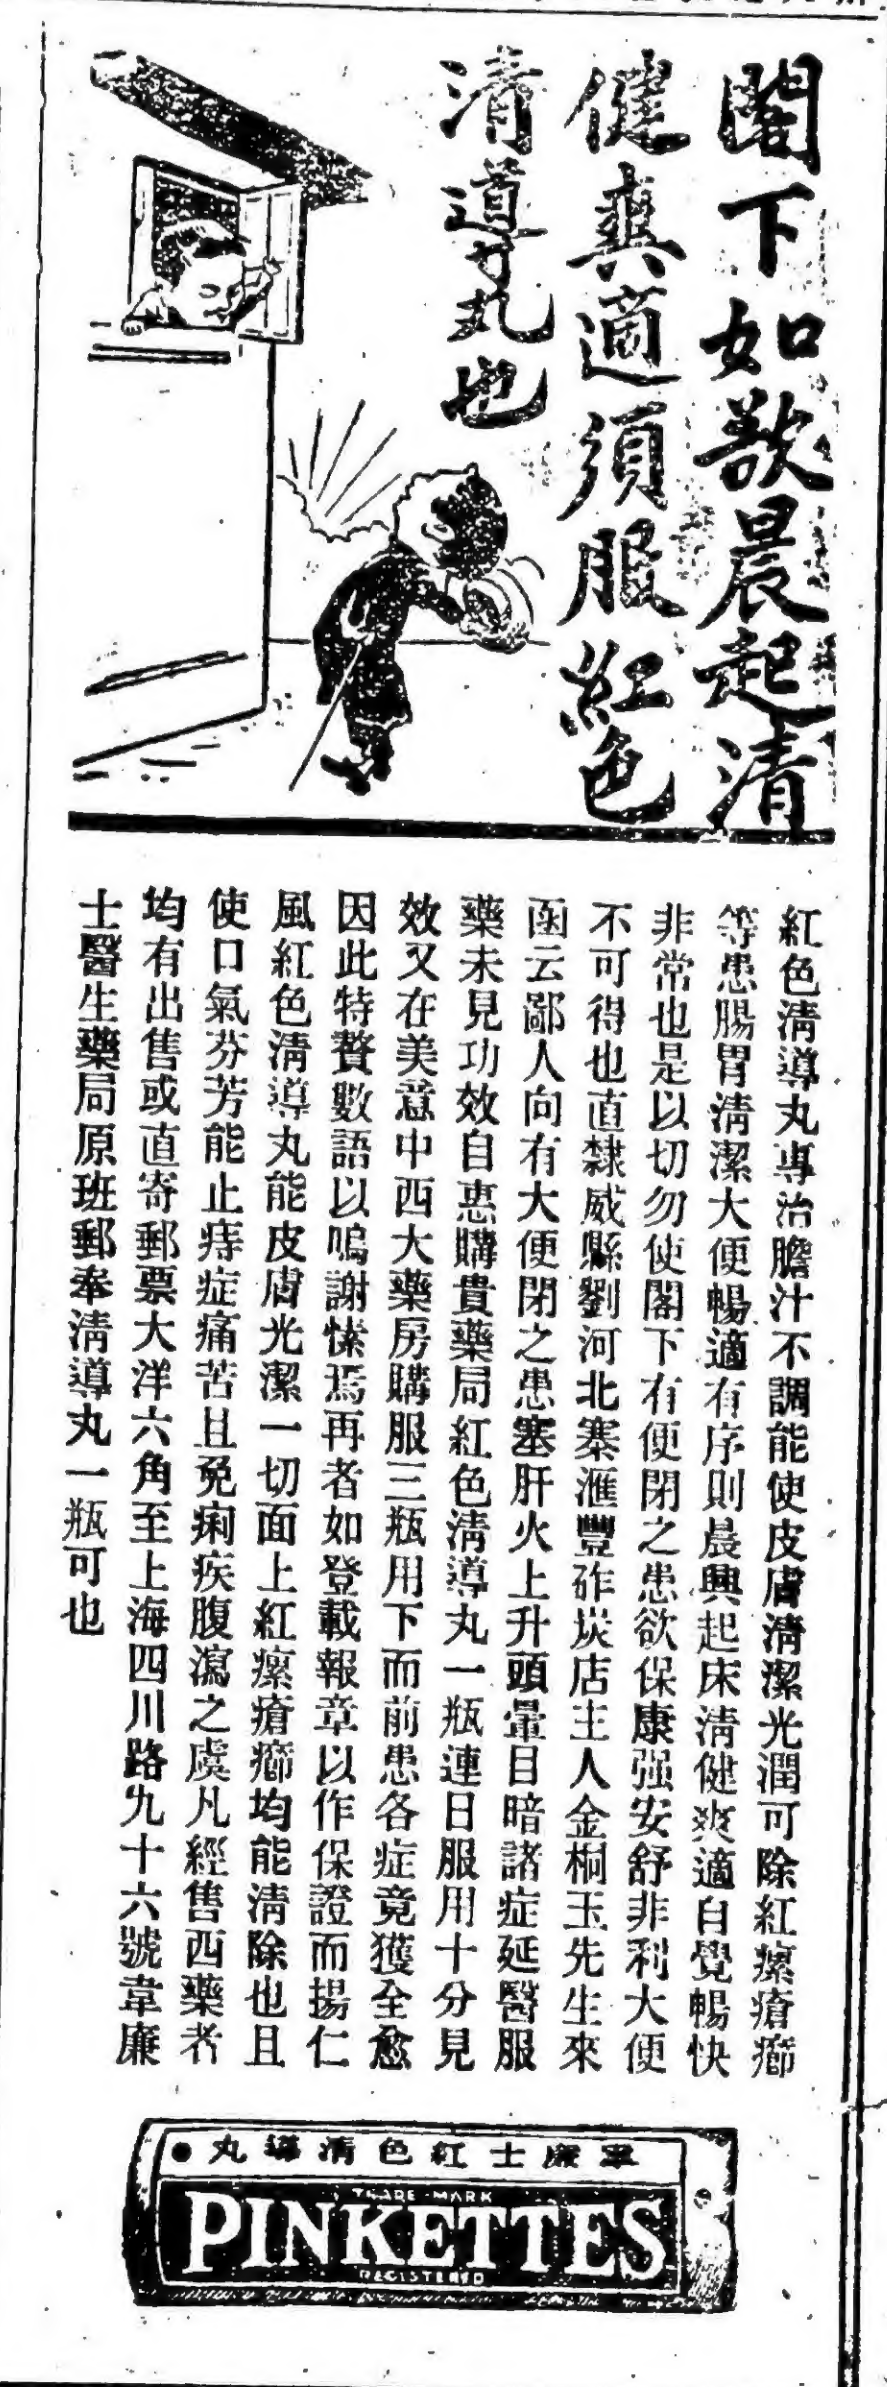 閣下如欲晨起清
健爽適須服紅色
清導丸也
紅色淸導丸專治膽汁不調能使皮膚淸潔光潤可除紅瘰瘡癤
等患腸胃淸潔大便暢適有序則晨興起床淸健爽適自覺暢快
非常也是以切勿使閣下有便閉之患欲保康强安舒非利大便
不可得也直隸威縣劉河北寨滙豐砟炭店主人金桐玉先生來
函云鄙人向有大便閉之患塞肝火上升頭暈目暗諸症延醫服
藥未見功效自惠購貴藥局紅色淸導丸一瓶連日服用十分見
效又在美意中西大藥房購服三瓶用下而前患各症竟獲全愈
因此特贅數語以鳴謝愫焉再者如登載報章以作保證而揚仁
風紅色淸導丸能皮膚光潔一切面上紅瘰瘡癤均能淸除也且
使口氣芬芳能止痔症痛苦且免痢疾腹瀉之虞凡經售西藥者
均有出售或直寄郵票大洋六角至上海四川路九十六號韋廉
士醫生藥局原班郵奉淸導丸一瓶可也
韋廉士紅色清導丸
TRADE MARK
PINKETTES
REGISTERED